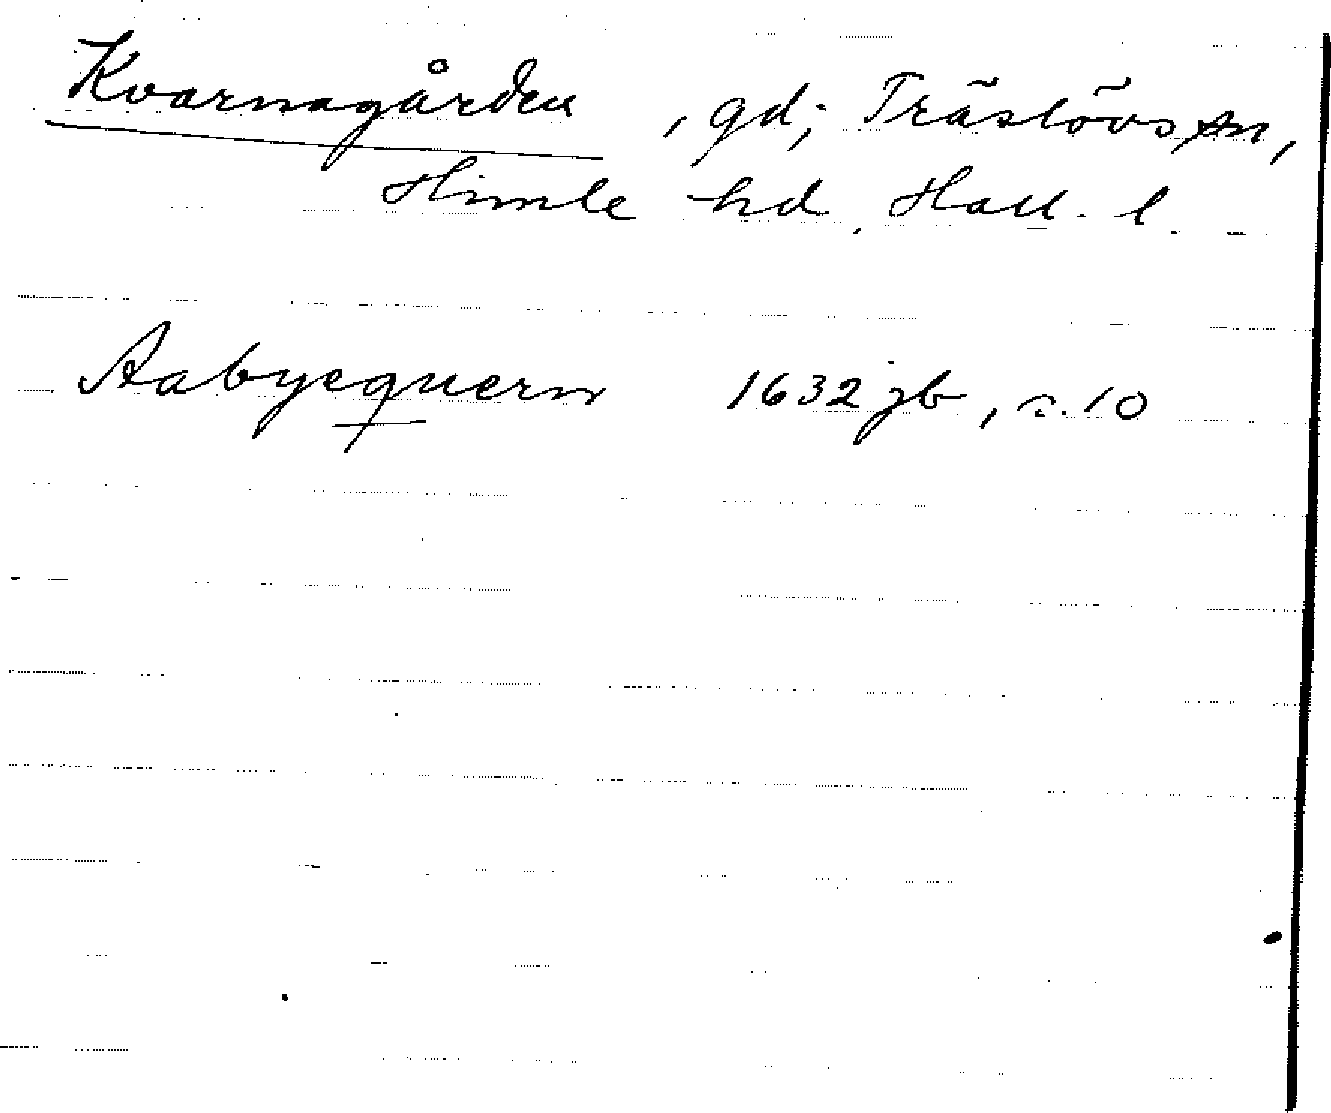 Kvarnagården, gd; Träslövs sn,
Himle hd, Hall. l.
Aabyequern 1632 jb, s. 10